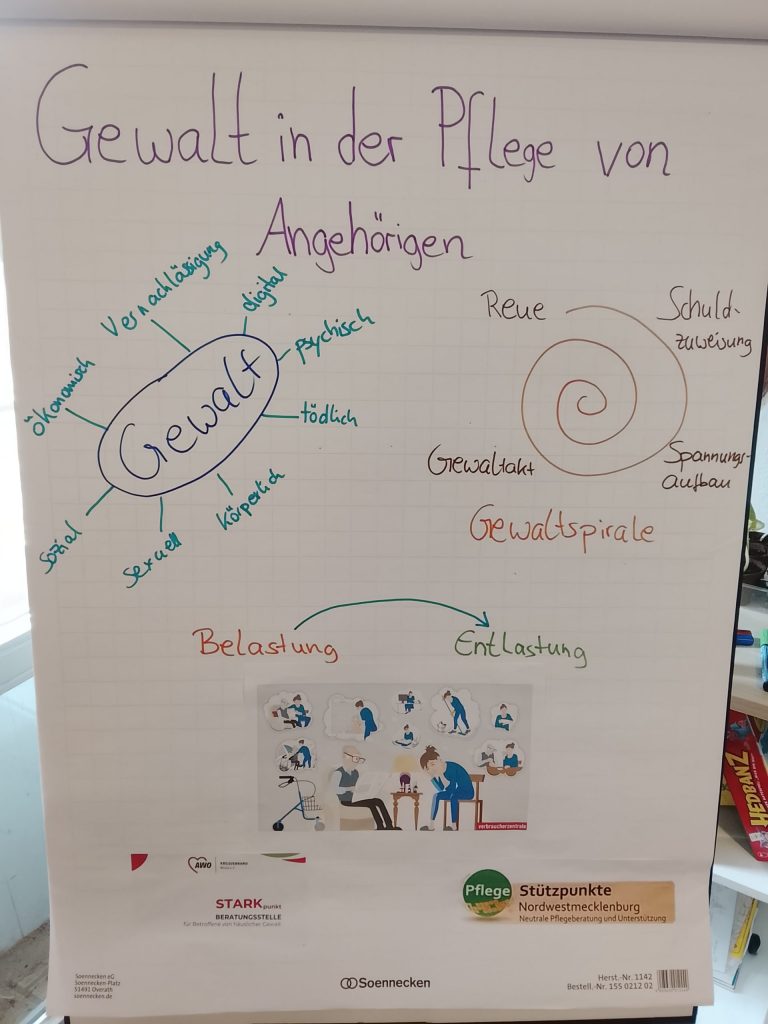 Gewalt in der Pflege von
Angehörigen
Vernachlässigung
digital
psychisch
ökonomisch
Gewalt
tödlich
körperlich
sexuell
sozial
Reue
Schuld-
zuweisung
Gewaltakt
Spannungs-
aufbau
Gewaltspirale
Belastung
Entlastung
verbraucherzentrale
HEDBANZ
AWO
KREISVERBAND
STARKpunkt
BERATUNGSSTELLE
für Betroffene von häuslicher Gewalt
Pflege Stützpunkte
Nordwestmecklenburg
Neutrale Pflegeberatung und Unterstützung
Soennecken eG
Soennecken-Platz
51491 Overath
soennecken.de
Soennecken
Herst.-Nr. 1142
Bestell.-Nr. 155 0212 02